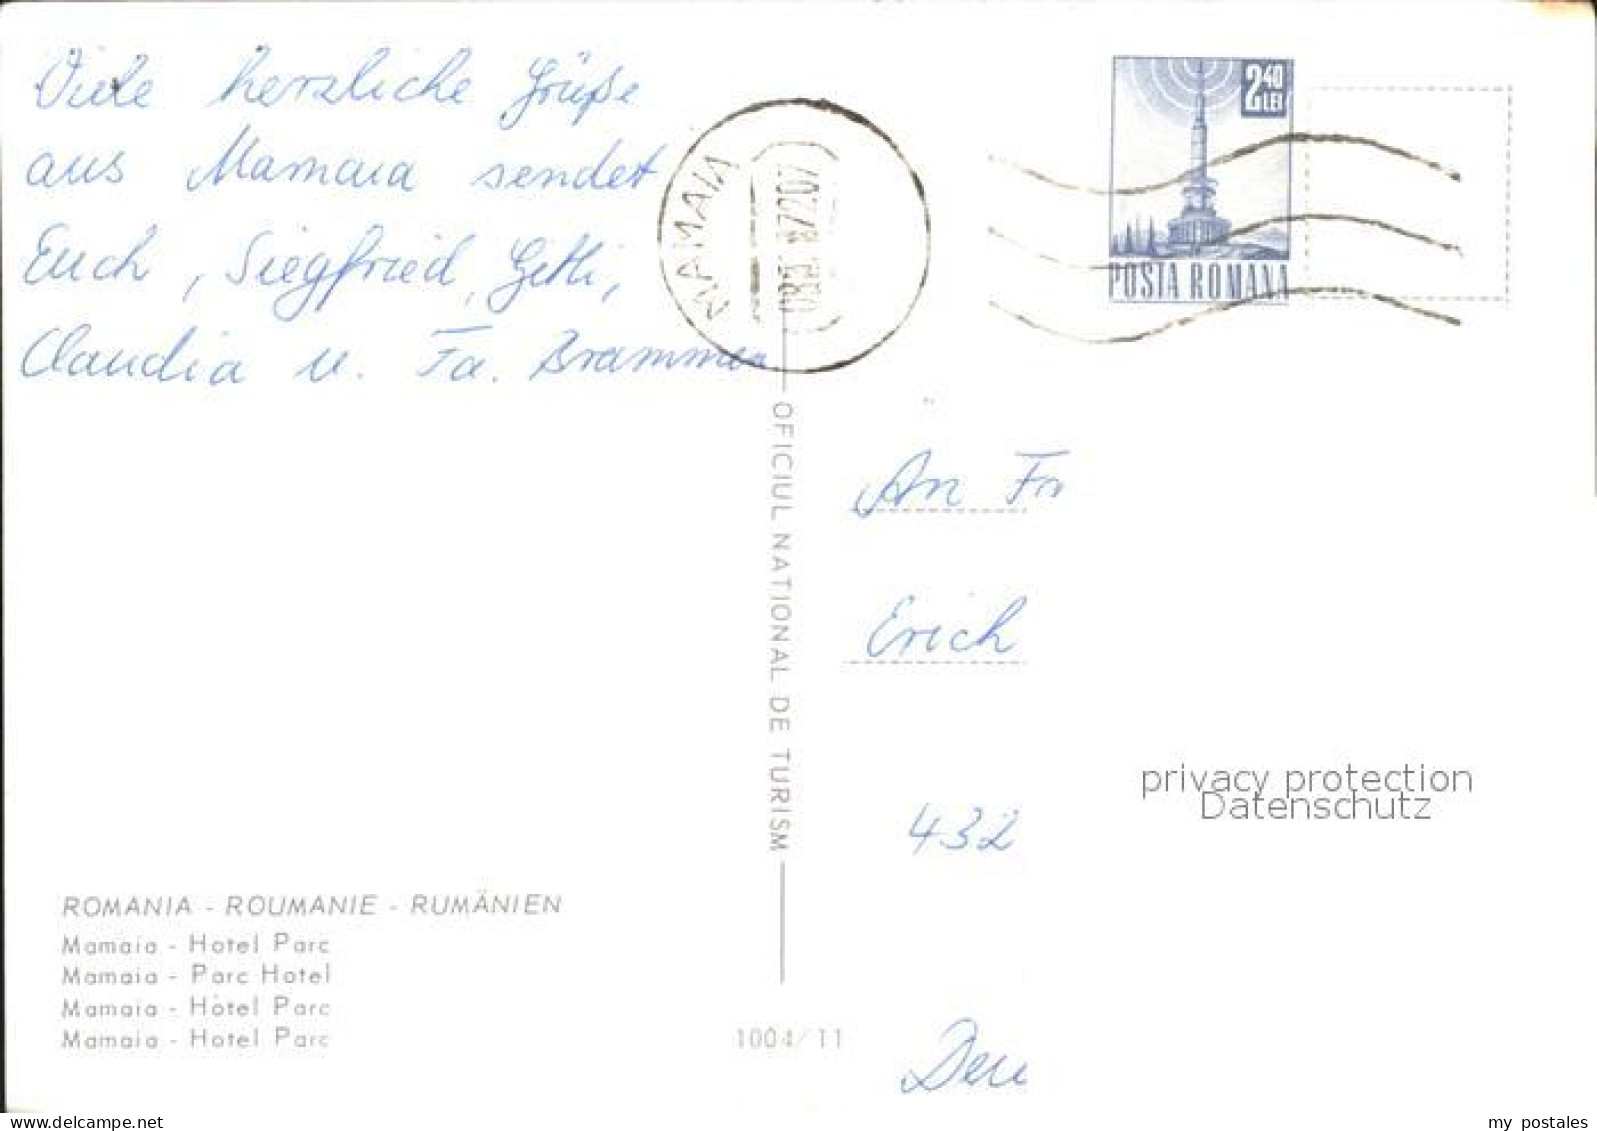 Viele herzliche Grüße
aus Mamaia sendet
Euch, Siegfried, Gitti,
Claudia u. Fa. Brammen
MAMAIA
2 40
LEI
POSTA ROMANA
OFICIUL NATIONAL DE TURISM
An Fa
Erich
432
privacy protection
Datenschutz
ROMANIA - ROUMANIE - RUMÄNIEN
Mamaia - Hotel Parc
Mamaia - Parc Hotel
Mamaia - Hôtel Parc
Mamaia - Hotel Parc
1004/11
delcampe.net
my_postales